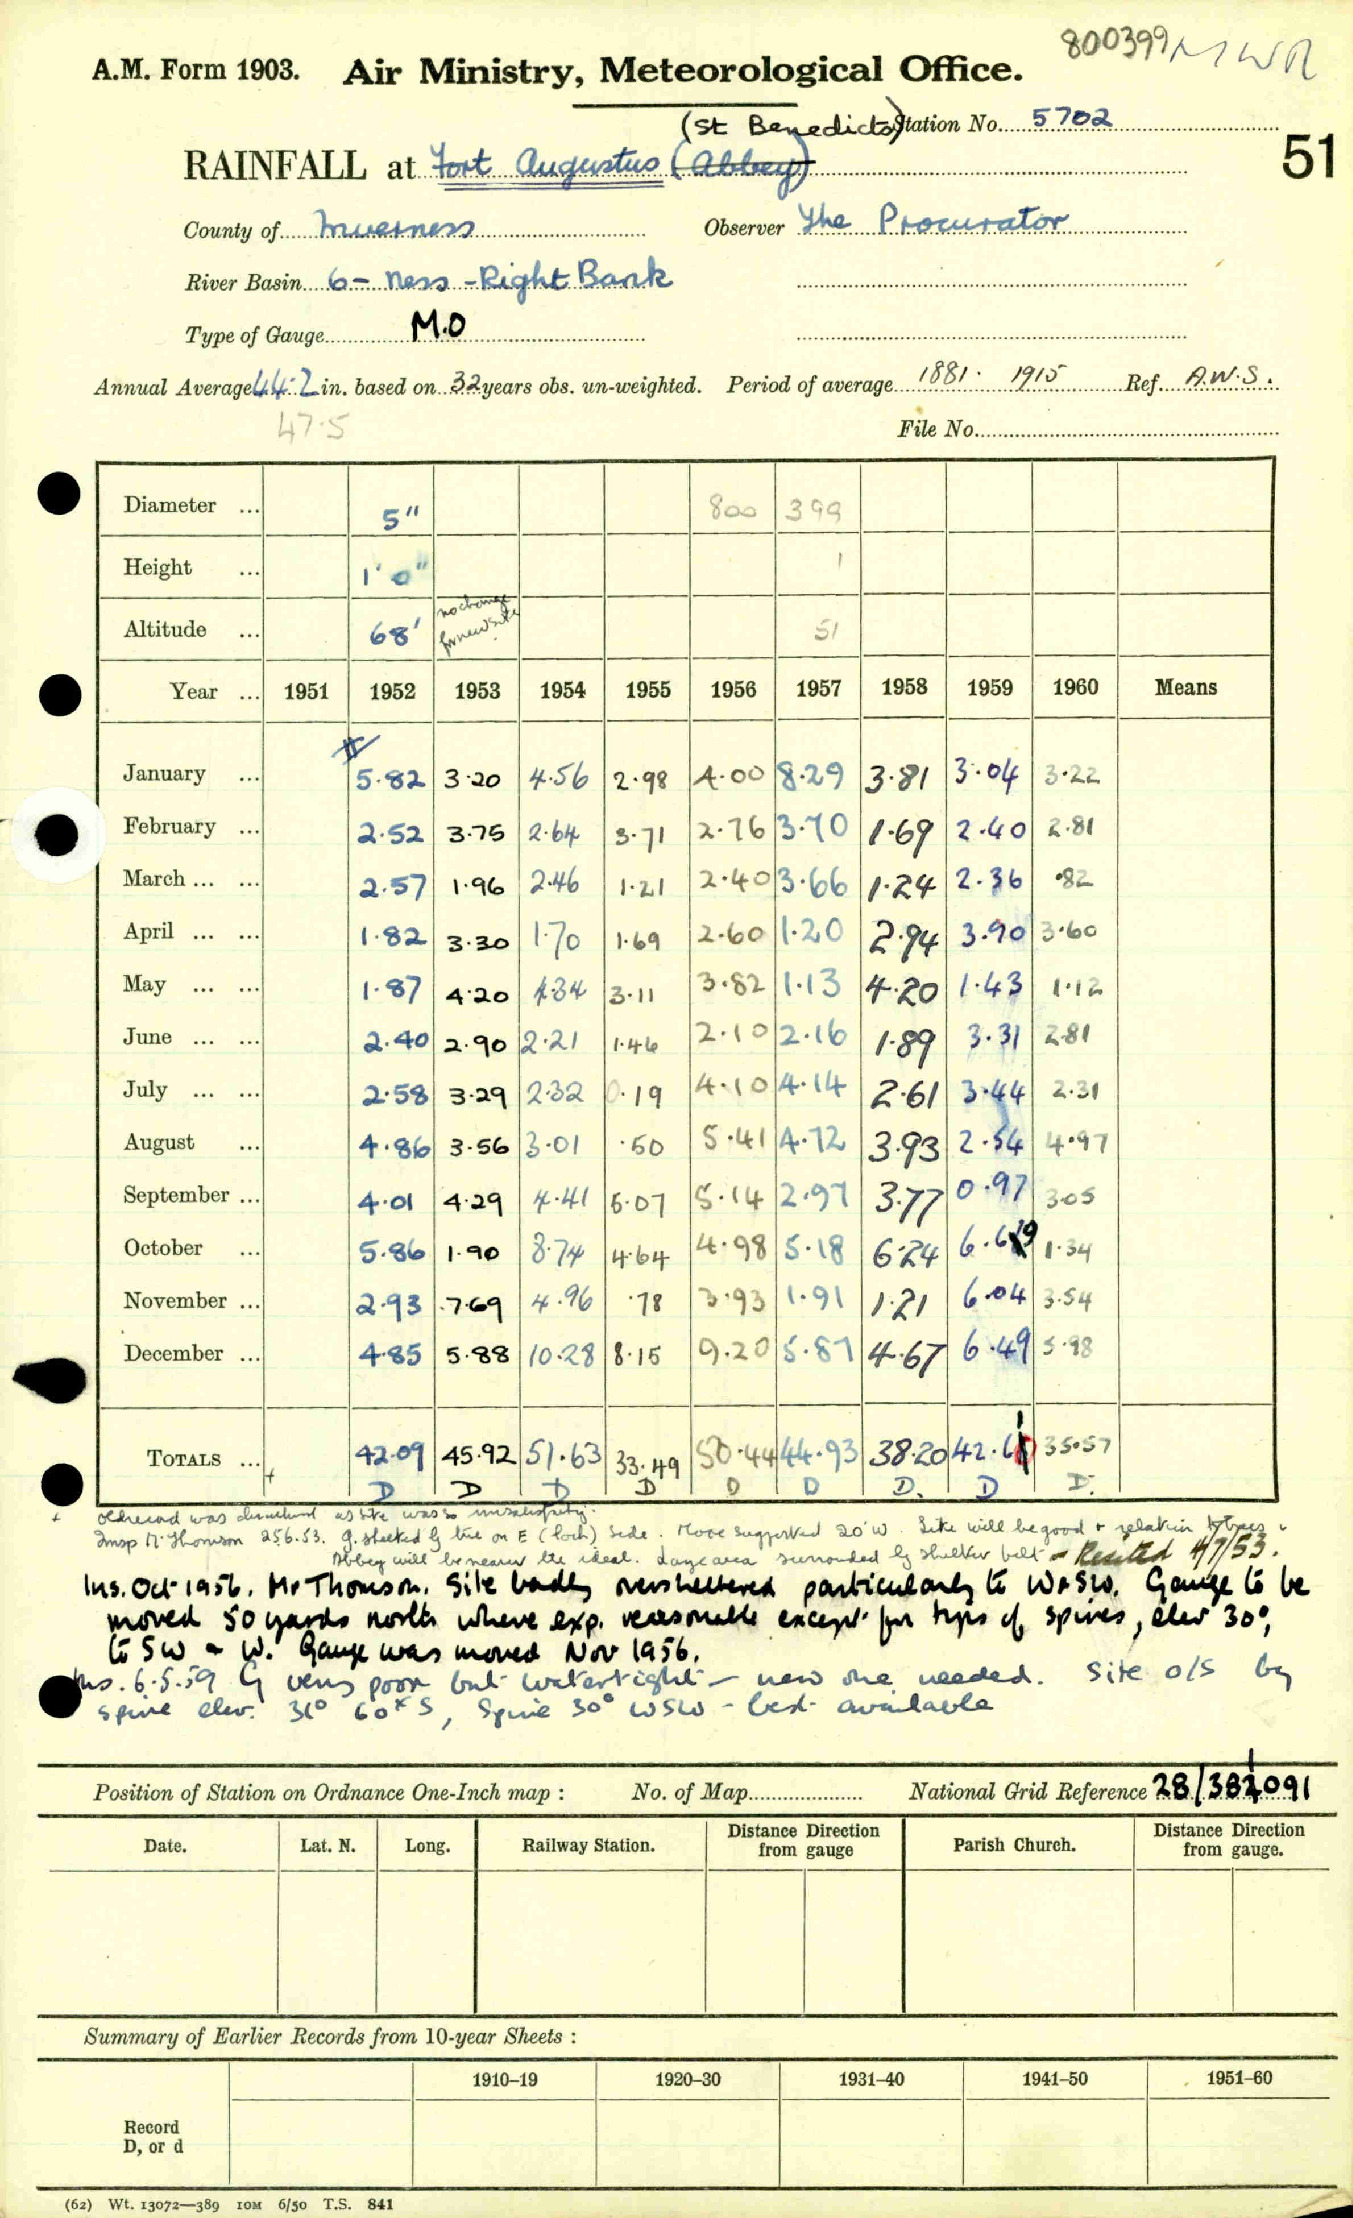 800399 MWR
A.M. Form 1903. Air Ministry, Meteorological Office.
(St Benedicts) Station No. 5702
RAINFALL at Fort Augustus (Abbey)
51
County of Inverness Observer The Procurator
River Basin 6 - Ness - Right Bank
Type of Gauge M.O
Annual Average 44.2 in. based on 32 years obs. un-weighted. Period of average 1881. 1915 Ref. A.W.S.
47.5
File No.
Diameter ... 5" 800 399
Height ... 1' 0" 1
Altitude ... 68' no change for new site 51
Year ... 1951 1952 1953 1954 1955 1956 1957 1958 1959 1960 Means
January ... 5.82 3.20 4.56 2.98 4.00 8.29 3.81 3.04 3.22
February ... 2.52 3.75 2.64 3.71 2.76 3.70 1.69 2.40 2.81
March ... ... 2.57 1.96 2.46 1.21 2.40 3.66 1.24 2.36 .82
April ... ... 1.82 3.30 1.70 1.69 2.60 1.20 2.94 3.90 3.60
May ... ... 1.87 4.20 4.34 3.11 3.82 1.13 4.20 1.43 1.12
June ... ... 2.40 2.90 2.21 1.46 2.10 2.16 1.89 3.31 2.81
July ... ... 2.58 3.29 2.32 0.19 4.10 4.14 2.61 3.44 2.31
August ... 4.86 3.56 3.01 .50 5.41 4.72 3.93 2.54 4.97
September ... 4.01 4.29 4.41 5.07 5.14 2.97 3.77 0.97 3.05
October ... 5.86 1.90 8.74 4.64 4.98 5.18 6.24 6.69 1.34
November ... 2.93 7.69 4.96 .78 3.93 1.91 1.21 6.04 3.54
December ... 4.85 5.88 10.28 8.15 9.20 5.87 4.67 6.49 5.98
TOTALS ... 42.09 45.92 51.63 33.49 50.44 44.93 38.20 42.61 35.57
+ D D D D D D D. D D.
+ Old record was as site was so unsatisfactory.
Insp Mr Thomson 25.6.53. G. sheltered by tree on E (loch) side. Move suggested 20' W. Site will be good & relation to trees &
Abbey will be nearer the ideal. Large area surrounded by shelter belt - Resited 4/7/53.
Ins. Oct 1956. Mr Thomson. Site badly oversheltered particularly to W & SW. Gauge to be
moved 50 yards north where exp. reasonable except for tips of spires, elev 30°,
to SW & W. Gauge was moved Nov 1956.
Ins. 6.5.59 G very poor but watertight - new one needed. Site o/s by
spire elev. 31° 60ˣ S, Spire 30° WSW - best available
Position of Station on Ordnance One-Inch map : No. of Map National Grid Reference 28/381091
Date. Lat. N. Long. Railway Station. Distance Direction from gauge Parish Church. Distance Direction from gauge.
Summary of Earlier Records from 10-year Sheets :
1910–19 1920–30 1931–40 1941–50 1951–60
Record
D, or d
(62) Wt. 13072—389 10M 6/50 T.S. 841